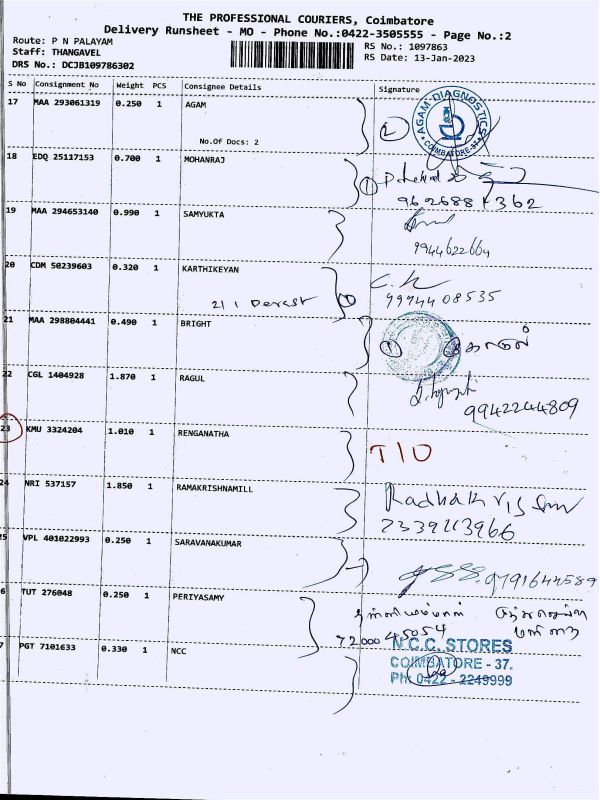 THE PROFESSIONAL COURIERS, Coimbatore
Delivery Runsheet - MO - Phone No.:0422-3505555 - Page No.:2
Route: P N PALAYAM
Staff: THANGAVEL
DRS No.: DCJB109786302
RS No.: 1097863
RS Date: 13-Jan-2023
S No Consignment No Weight PCS Consignee Details Signature
17 MAA 293061319 0.250 1 AGAM
No.Of Docs: 2
2
AGAM DIAGNOSTICS
COIMBATORE
18 EDQ 25117153 0.700 1 MOHANRAJ
1
19 MAA 294653140 0.990 1 SAMYUKTA
9944622664
20 CDM 50239603 0.320 1 KARTHIKEYAN
9994408535
21 MAA 298804441 0.490 1 BRIGHT
1
22 CGL 1404928 1.870 1 RAGUL
9942244809
23 KMU 3324204 1.010 1 RENGANATHA
24 NRI 537157 1.850 1 RAMAKRISHNAMILL
25 VPL 401022993 0.250 1 SARAVANAKUMAR
9791644589
6 TUT 276048 0.250 1 PERIYASAMY
7200045054
7 PGT 7101633 0.330 1 NCC
N.C.C. STORES
COIMBATORE - 37.
PH: 0422 - 2249999